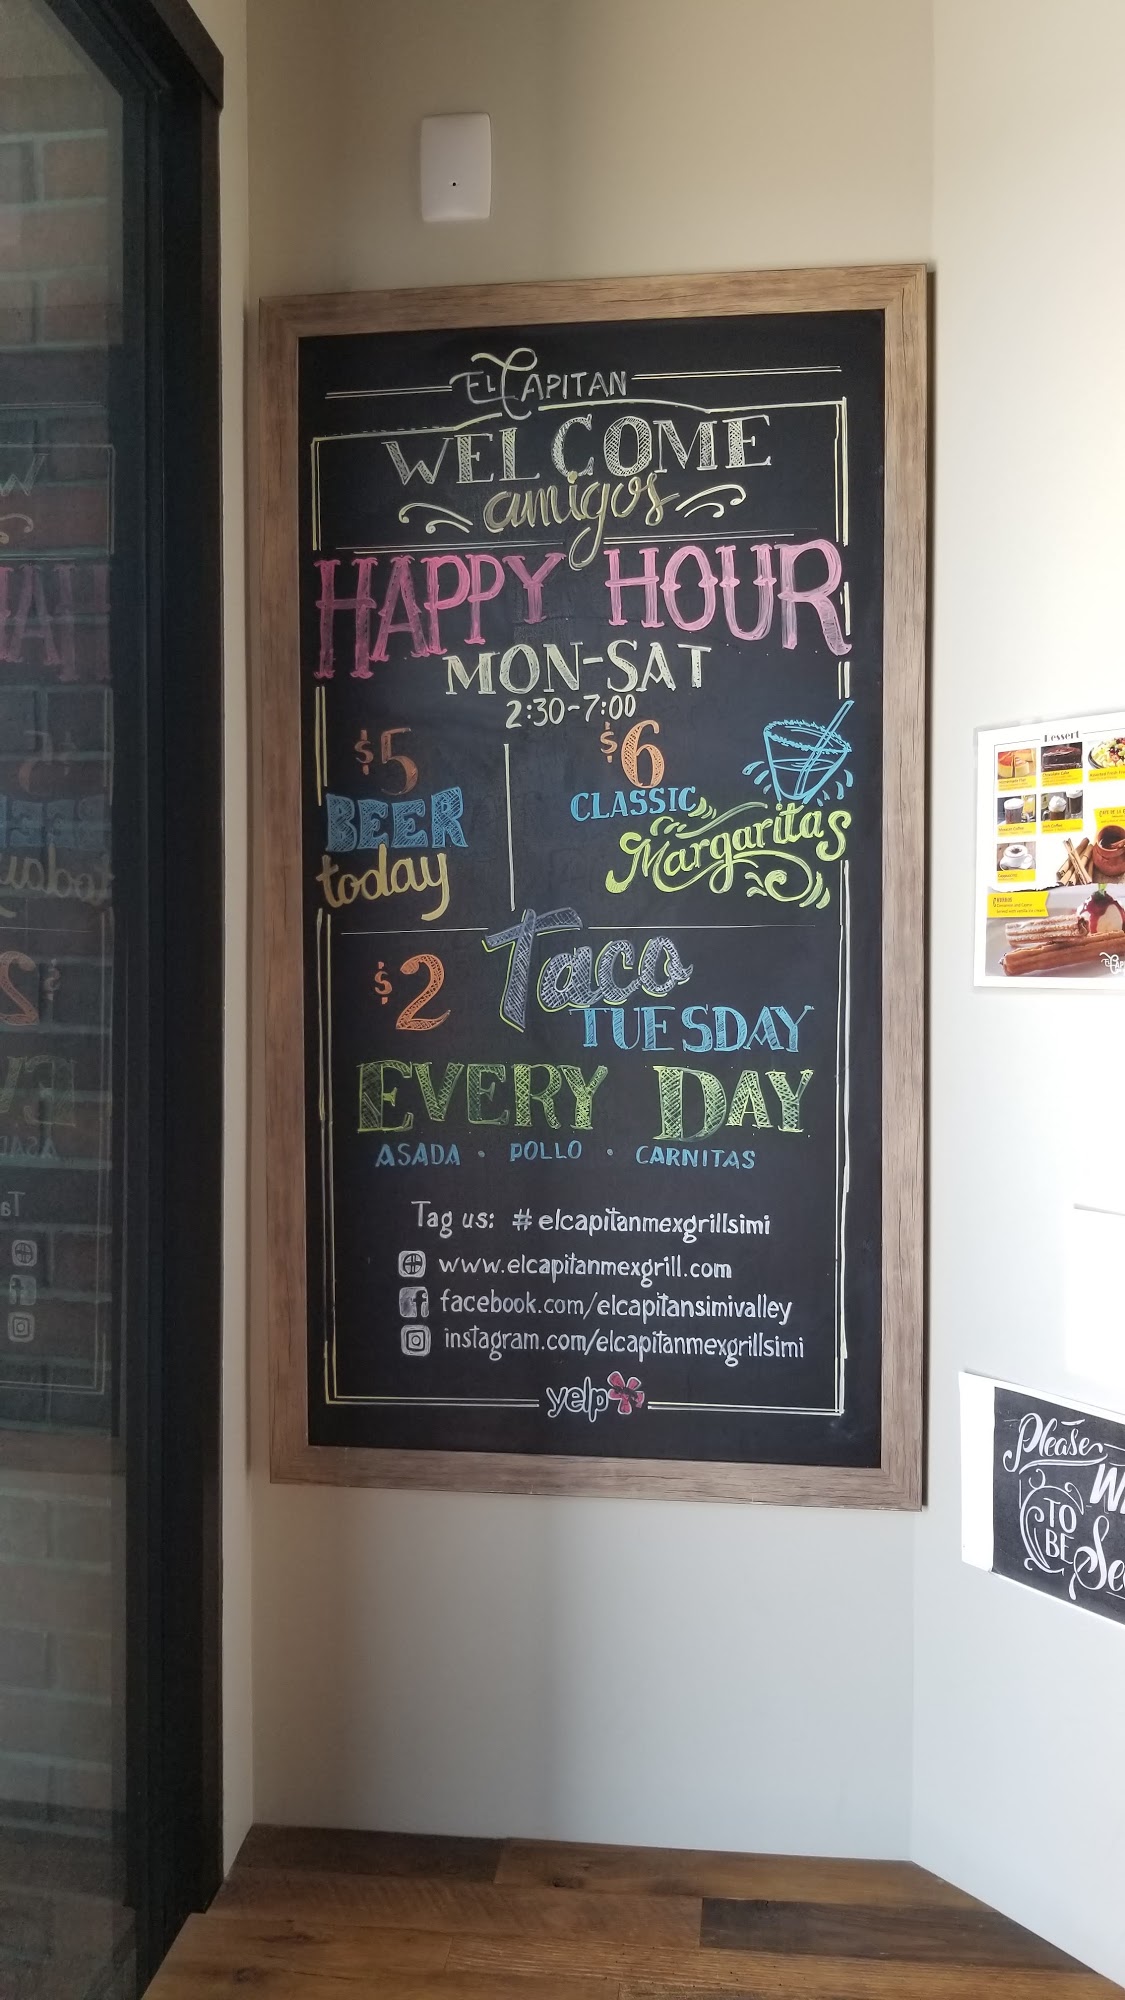 EL CAPITAN
WELCOME
amigos
HAPPY HOUR
MON-SAT
2:30-7:00
$5
BEER
today
$6
CLASSIC
Margaritas
$2 Taco
TUESDAY
EVERY DAY
ASADA · POLLO · CARNITAS
Tag us: #elcapitanmexgrillsimi
www.elcapitanmexgrill.com
facebook.com/elcapitansimivalley
instagram.com/elcapitanmexgrillsimi
yelp
Dessert
Chocolate Cake
Please
TO
BE